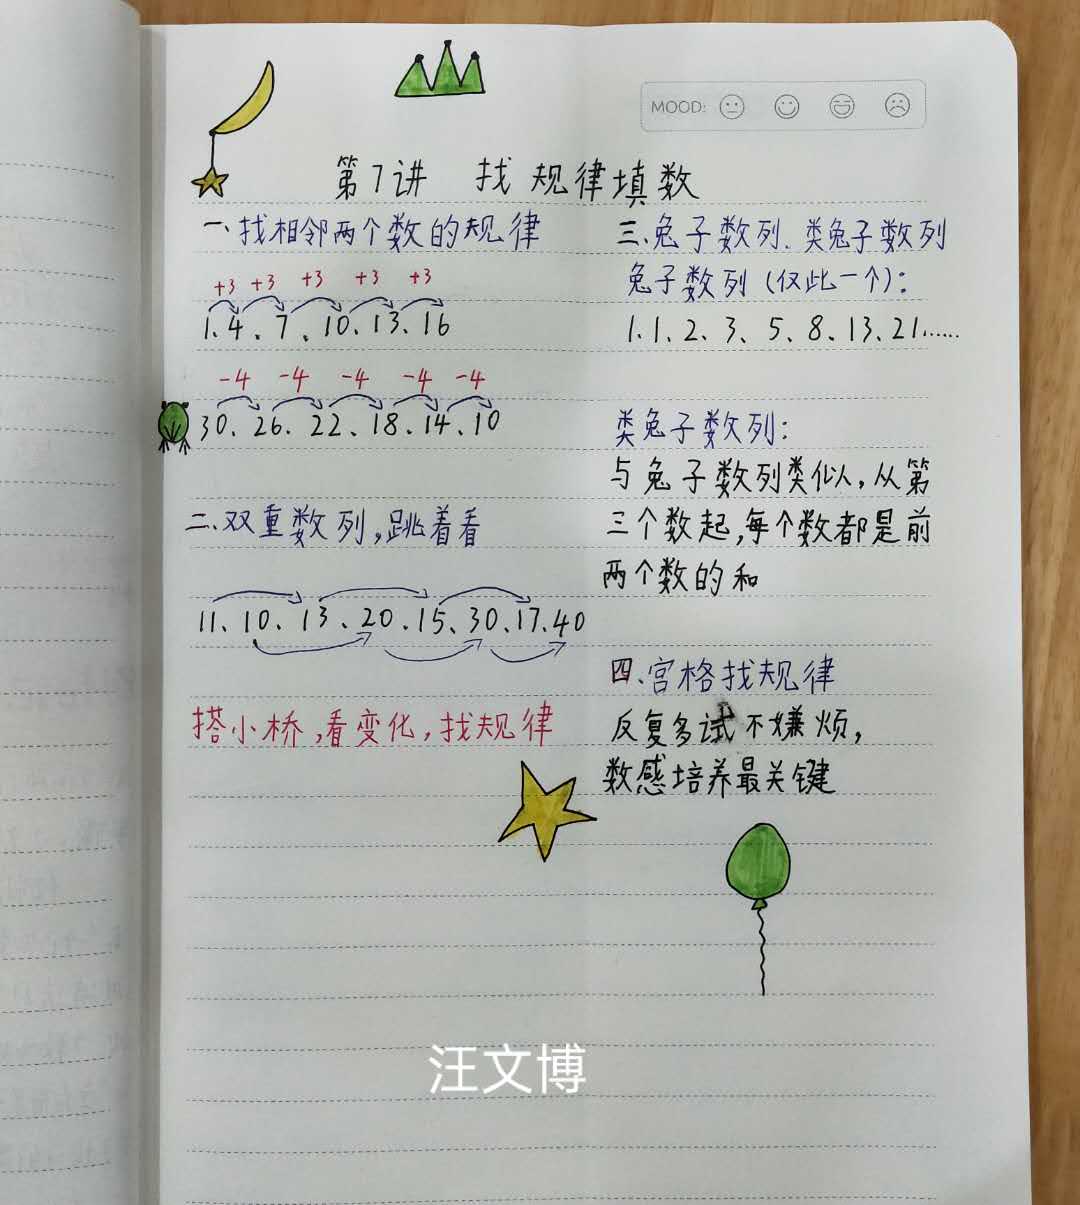 MOOD:
第7讲 找规律填数
一、找相邻两个数的规律
+3 +3 +3 +3 +3
1、4、7、10、13、16
-4 -4 -4 -4 -4
30、26、22、18、14、10
二、双重数列,跳着看
11、10、13、20、15、30、17、40
搭小桥,看变化,找规律
三、兔子数列、类兔子数列
兔子数列(仅此一个):
1、1、2、3、5、8、13、21……
类兔子数列:
与兔子数列类似,从第
三个数起,每个数都是前
两个数的和
四、宫格找规律
反复多试不嫌烦,
数感培养最关键
汪文博